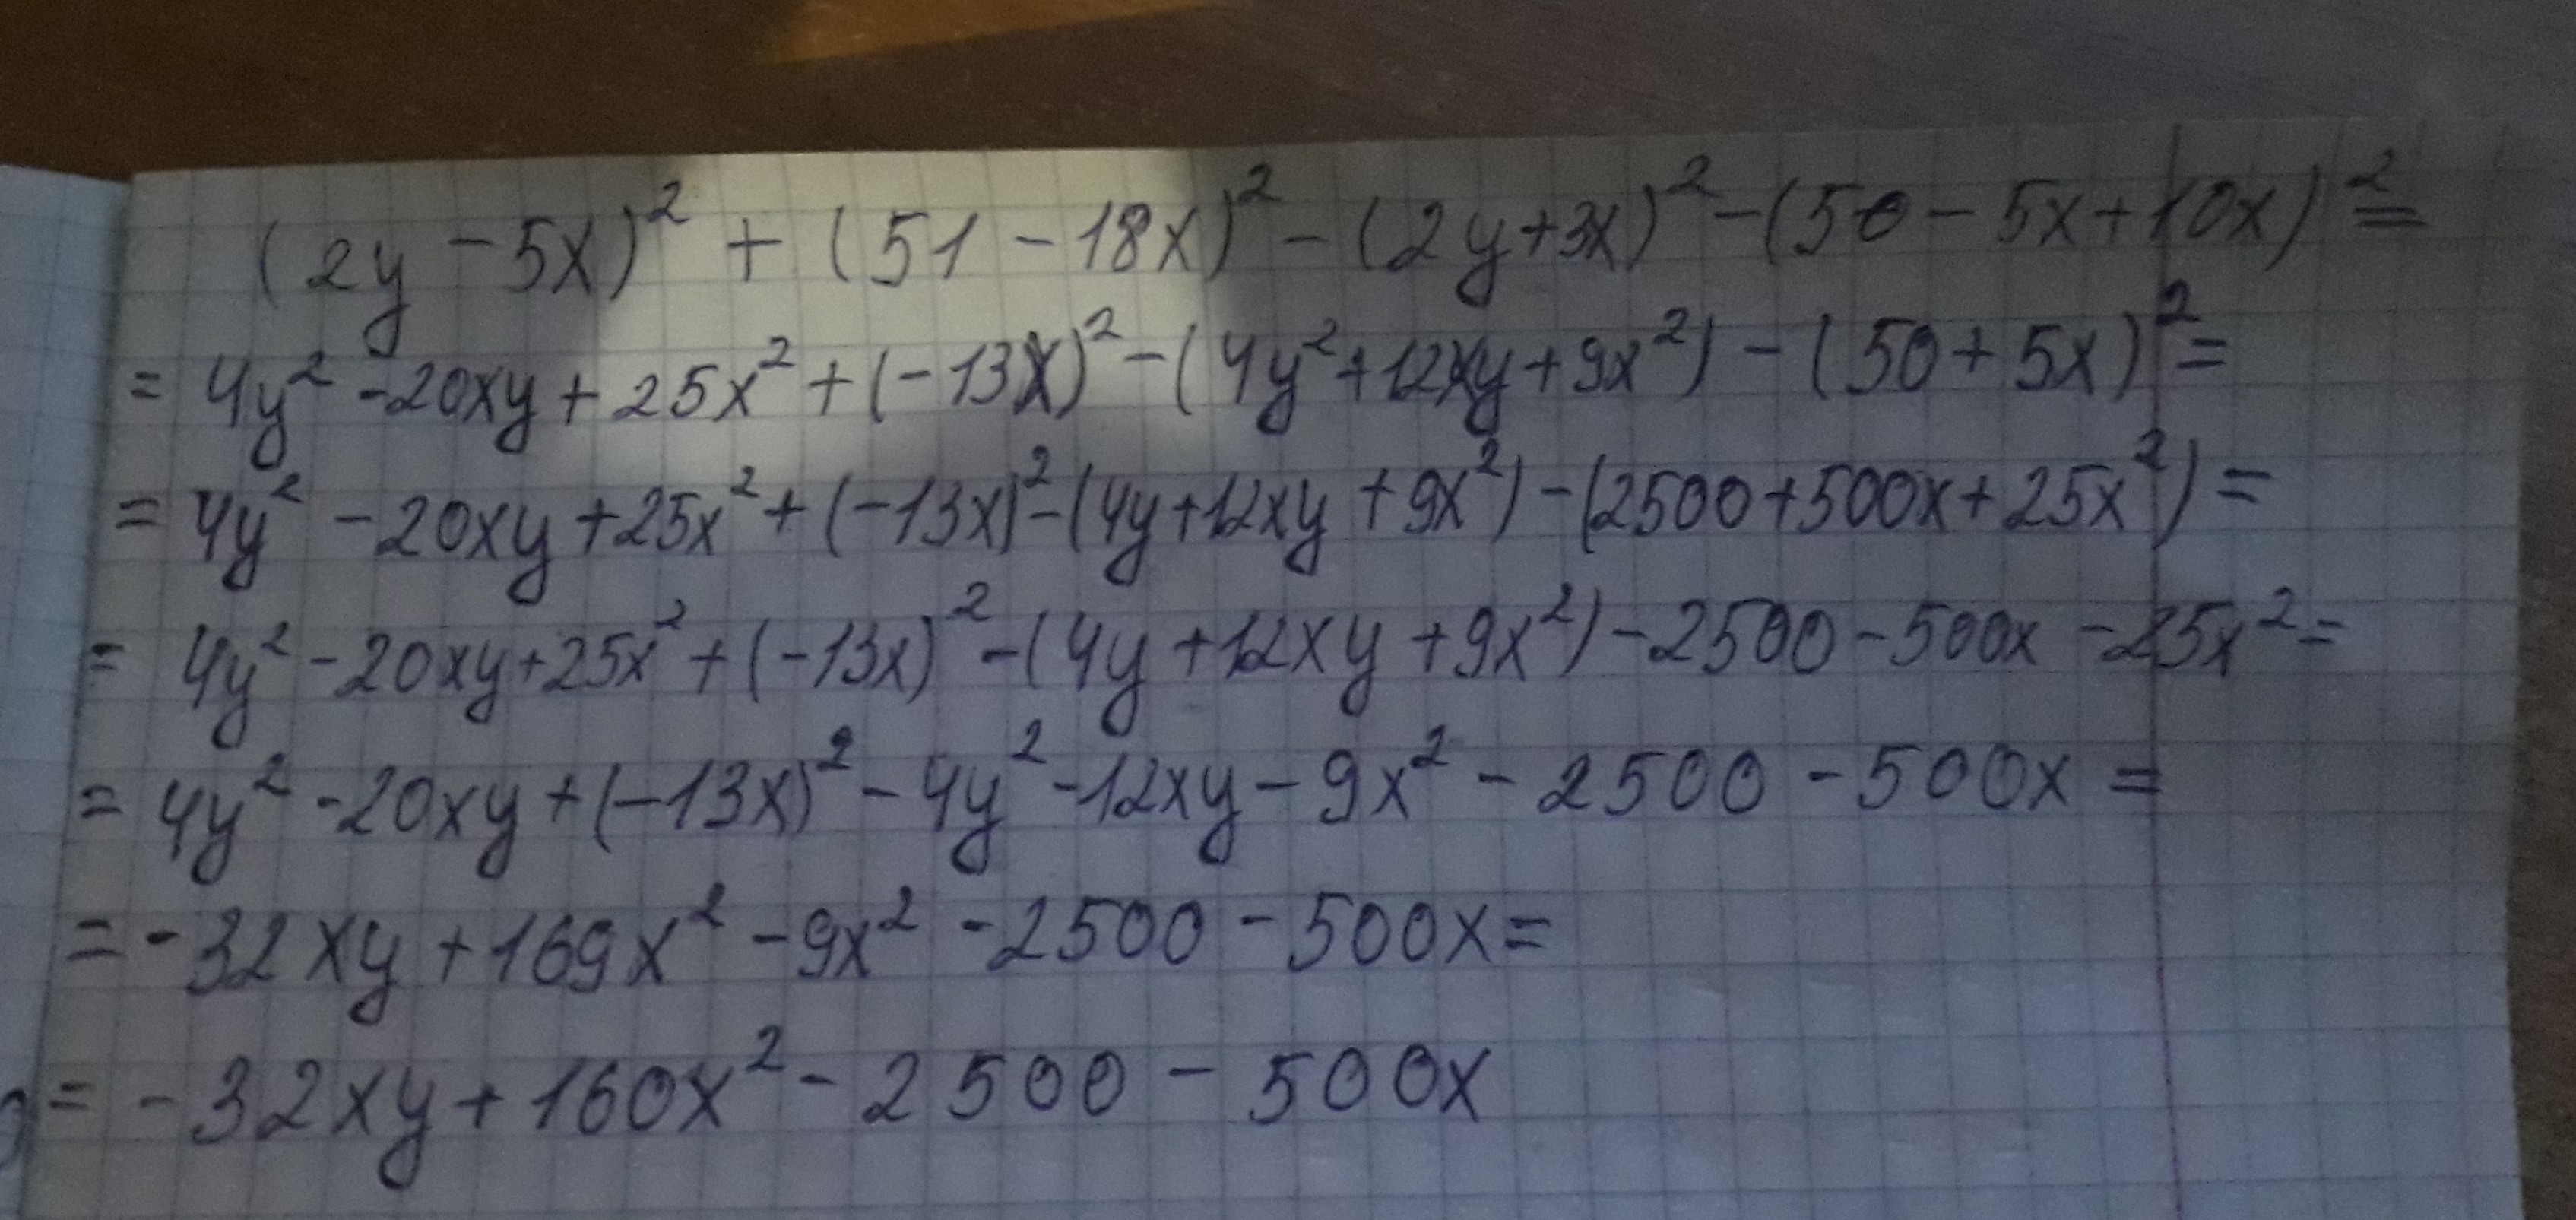 (2y - 5x)² + (51 - 18x)² - (2y + 3x)² - (50 - 5x + 10x)² =
= 4y² - 20xy + 25x² + (-13x)² - (4y² + 12xy + 9x²) - (50 + 5x)² =
= 4y² - 20xy + 25x² + (-13x)² - (4y + 12xy + 9x²) - (2500 + 500x + 25x²) =
= 4y² - 20xy + 25x² + (-13x)² - (4y + 12xy + 9x²) - 2500 - 500x - 25x² =
= 4y² - 20xy + (-13x)² - 4y² - 12xy - 9x² - 2500 - 500x =
= -32xy + 169x² - 9x² - 2500 - 500x =
= -32xy + 160x² - 2500 - 500x